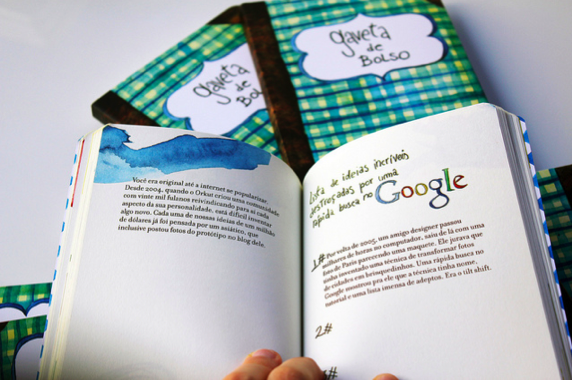 gaveta
de
BOLSO
gaveta
de
BOL
Você era original até a internet se popularizar.
Desde 2004, quando o Orkut criou uma comunidade
com vinte mil fulanos reivindicando para si cada
aspecto da sua personalidade, está difícil inventar
algo novo. Cada uma de nossas ideias de um milhão
de dólares já foi pensada por um asiático, que
inclusive postou fotos do protótipo no blog dele.
Lista de ideias incríveis
destroçadas por uma
rápida busca no Google
1# Por volta de 2005, um amigo designer passou
milhares de horas no computador, saiu de lá com uma
foto de Paris parecendo uma maquete. Ele jurava que
tinha inventado uma técnica de transformar fotos
de cidades em brinquedinhos. Uma rápida busca no
Google mostrou pra ele que a técnica tinha nome,
tutorial e uma lista imensa de adeptos. Era o tilt shift.
2#
#